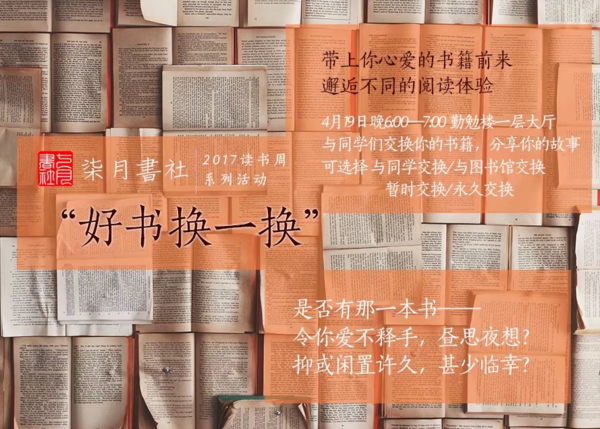 带上你心爱的书籍前来
邂逅不同的阅读体验
4月19日晚6:00—7:00 勤勉楼一层大厅
与同学们交换你的书籍，分享你的故事
可选择 与同学交换/与图书馆交换
暂时交换/永久交换
柒月書社
2017读书周
系列活动
“好书换一换”
是否有那一本书——
令你爱不释手，昼思夜想？
抑或闲置许久，甚少临幸？